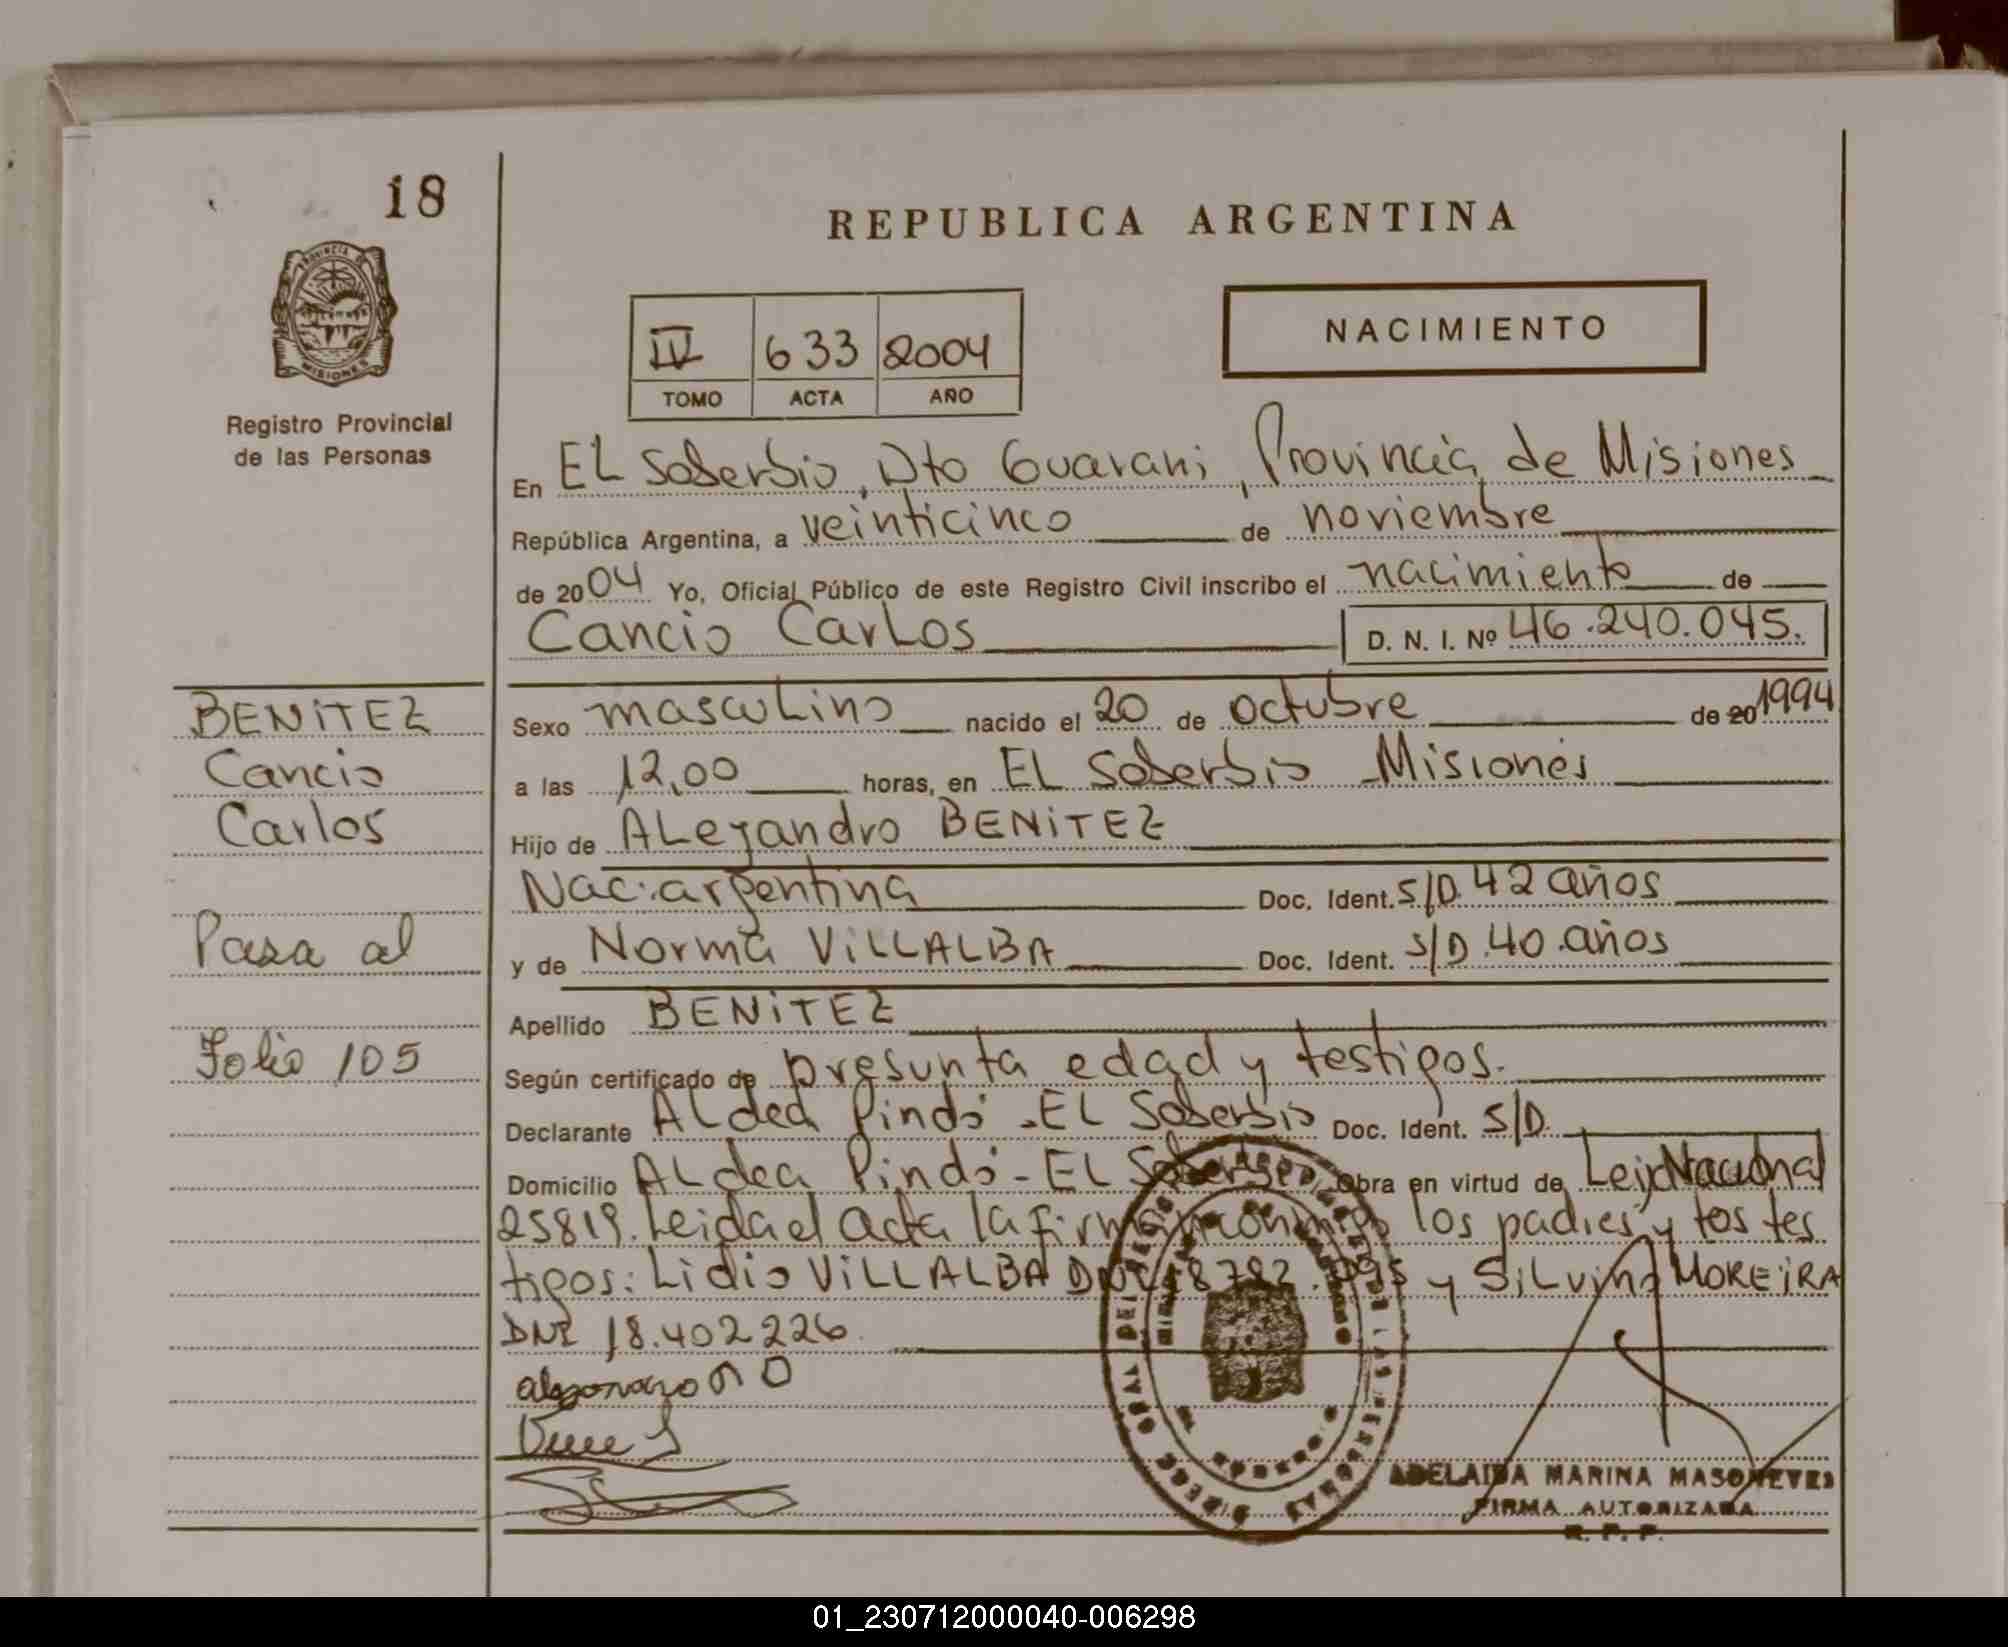 18
PROVINCIA DE
MISIONES
Registro Provincial
de las Personas
REPUBLICA ARGENTINA
IV 633 2004
TOMO ACTA AÑO
NACIMIENTO
En EL Soberbio, Dto Guarani, Provincia de Misiones
República Argentina, a veinticinco de noviembre
de 2004 Yo, Oficial Público de este Registro Civil inscribo el nacimiento de
Cancio Carlos D. N. I. Nº 46.240.045.
BENITEZ
Cancio
Carlos
Pasa al
Folio 105
Sexo masculino nacido el 20 de octubre de 20 1994
a las 12,00 horas, en EL Soberbio - Misiones
Hijo de ALejandro BENITEZ
Nac: argentina Doc. Ident. S/D. 42 años
y de Norma VILLALBA Doc. Ident. S/D. 40 años
Apellido BENITEZ
Según certificado de presunta edad y testigos.
Declarante ALdea Pindó - EL Soberbio Doc. Ident. S/D.
Domicilio ALdea Pindó - EL Soberbio Obra en virtud de Ley Nacional
25819. Leida el acta la firman conmigo los padres y los tes
tigos: Lidio VILLALBA DNI 18782.995 y SiLvino MOREIRA
DNI 18.402226.
ADELAIDA MARINA MASONEVES
FIRMA AUTORIZADA
R. P. P.
01_230712000040-006298